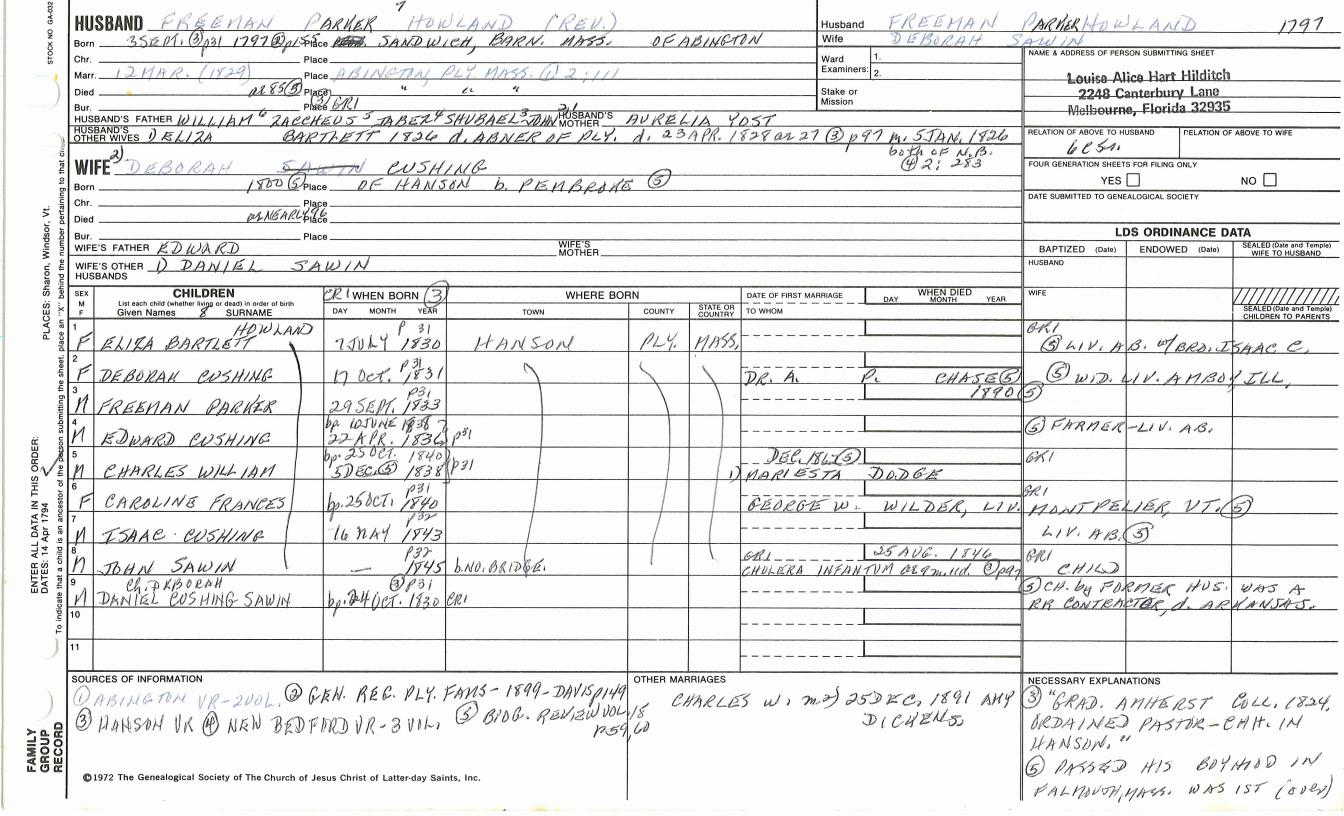 STOCK NO GA-032
7
HUSBAND FREEMAN PARKER HOWLAND (REV.)
Born 3 SEPT. ③ p31 1797 ② Place SANDWICH, BARN. MASS. OF ABINGTON
Chr. Place
Marr. 12 MAR. (1829) Place ABINGTON, PLY. MASS. ① 2:111
Died ae 85 ⑤ Place " " "
Bur. Place GR1
HUSBAND'S FATHER WILLIAM 6 ZACCHEUS 5 JABEZ 4 SHUBAEL 3 JOHN 2,1 HUSBAND'S MOTHER AURELIA YOST
HUSBAND'S OTHER WIVES 1) ELIZA BARTLETT 1826 d. ABNER OF PLY. d. 23 APR. 1828 or 27 ③ p97 m. 5 JAN. 1826
both of N.B.
④ 2: 283
WIFE 2) DEBORAH SAWIN CUSHING
Born 1800 ⑤ Place OF HANSON b. PEMBROKE ⑤
Chr. Place
Died ae NEARLY 96 Place
Bur. Place
WIFE'S FATHER EDWARD WIFE'S MOTHER
WIFE'S OTHER HUSBANDS 1) DANIEL SAWIN
Husband FREEMAN PARKER HOWLAND 1797
Wife DEBORAH SAWIN
Ward Examiners: 1.
2.
Stake or Mission
NAME & ADDRESS OF PERSON SUBMITTING SHEET
Louise Alice Hart Hilditch
2248 Canterbury Lane
Melbourne, Florida 32935
RELATION OF ABOVE TO HUSBAND RELATION OF ABOVE TO WIFE
FOUR GENERATION SHEETS FOR FILING ONLY
YES NO
DATE SUBMITTED TO GENEALOGICAL SOCIETY
LDS ORDINANCE DATA
BAPTIZED (Date) ENDOWED (Date) SEALED (Date and Temple) WIFE TO HUSBAND
HUSBAND
WIFE
SEALED (Date and Temple) CHILDREN TO PARENTS
SEX M F CHILDREN
List each child (whether living or dead) in order of birth
Given Names 8 SURNAME
GR1 WHEN BORN ③ DAY MONTH YEAR
WHERE BORN TOWN COUNTY STATE OR COUNTRY
DATE OF FIRST MARRIAGE TO WHOM
WHEN DIED DAY MONTH YEAR
1 F ELIZA BARTLETT HOWLAND 7 JULY 1830 p 31 HANSON PLY. MASS. GR1 ⑤ LIV. A.B. w/BRO. ISAAC C.
2 F DEBORAH CUSHING 17 OCT. 1831 p31 DR. A. P. CHASE ⑤ ⑤ WID. LIV. AMBOY ILL.
3 M FREEMAN PARKER 29 SEPT. 1833 p31 1890 ⑤
4 M EDWARD CUSHING bp. 10 JUNE 1838 22 APR. 1836 p31 ⑤ FARMER-LIV. A.B.
5 M CHARLES WILLIAM bp. 25 OCT. 1840 5 DEC ⑤ 1838 p31 1) MARIESTA DODGE GR1
6 F CAROLINE FRANCES bp. 25 OCT. 1840 p31 GEORGE W. WILDER, LIV. MONTPELIER, VT. ⑤ GR1
7 M ISAAC CUSHING 16 MAY 1843 p32 LIV. A.B. ⑤
8 M JOHN SAWIN — 1845 p32 b. NO. BRIDGE. GR1 25 AUG. 1846 CHOLERA INFANTUM ae 9m. ③ p97 GR1 CHILD
9 M Ch. DEBORAH DANIEL CUSHING SAWIN bp. 24 OCT. 1830 ③ p31 CR1 ⑤ CH. by FORMER HUS. WAS A RR CONTRACTOR, d. ARKANSAS.
10
11
SOURCES OF INFORMATION
① ABINGTON VR-2 VOL. ② GEN. REG. PLY. FAMS-1899-DAVIS p149
③ HANSON VR ④ NEW BEDFORD VR-3 VOL, ⑤ BIOG. REVIEW VOL. 18 p59,60
OTHER MARRIAGES
CHARLES W. m 2) 25 DEC. 1891 AMY DICKENS
NECESSARY EXPLANATIONS
③ "GRAD. AMHERST COLL. 1824, ORDAINED PASTOR-CHH. IN HANSON."
⑤ PASSED HIS BOYHOOD IN FALMOUTH, MASS. WAS 1ST (over)
©1972 The Genealogical Society of The Church of Jesus Christ of Latter-day Saints, Inc.
FAMILY GROUP RECORD
ENTER ALL DATA IN THIS ORDER:
DATES: 14 Apr 1794
PLACES: Sharon, Windsor, Vt.
To indicate that a child is an ancestor of the person submitting the sheet, place an "X" behind the number pertaining to that